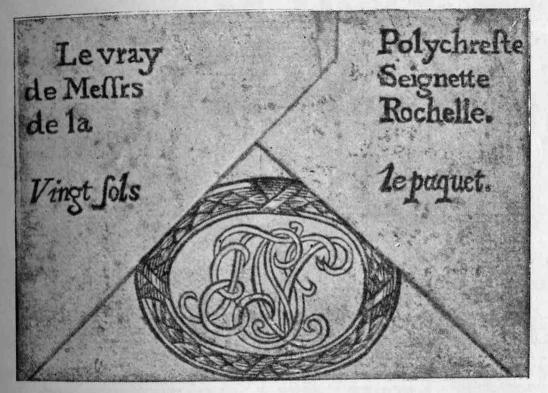 Le vray Polychreſte
de Meſſrs Seignette
de la Rochelle.
Vingt ſols le paquet.